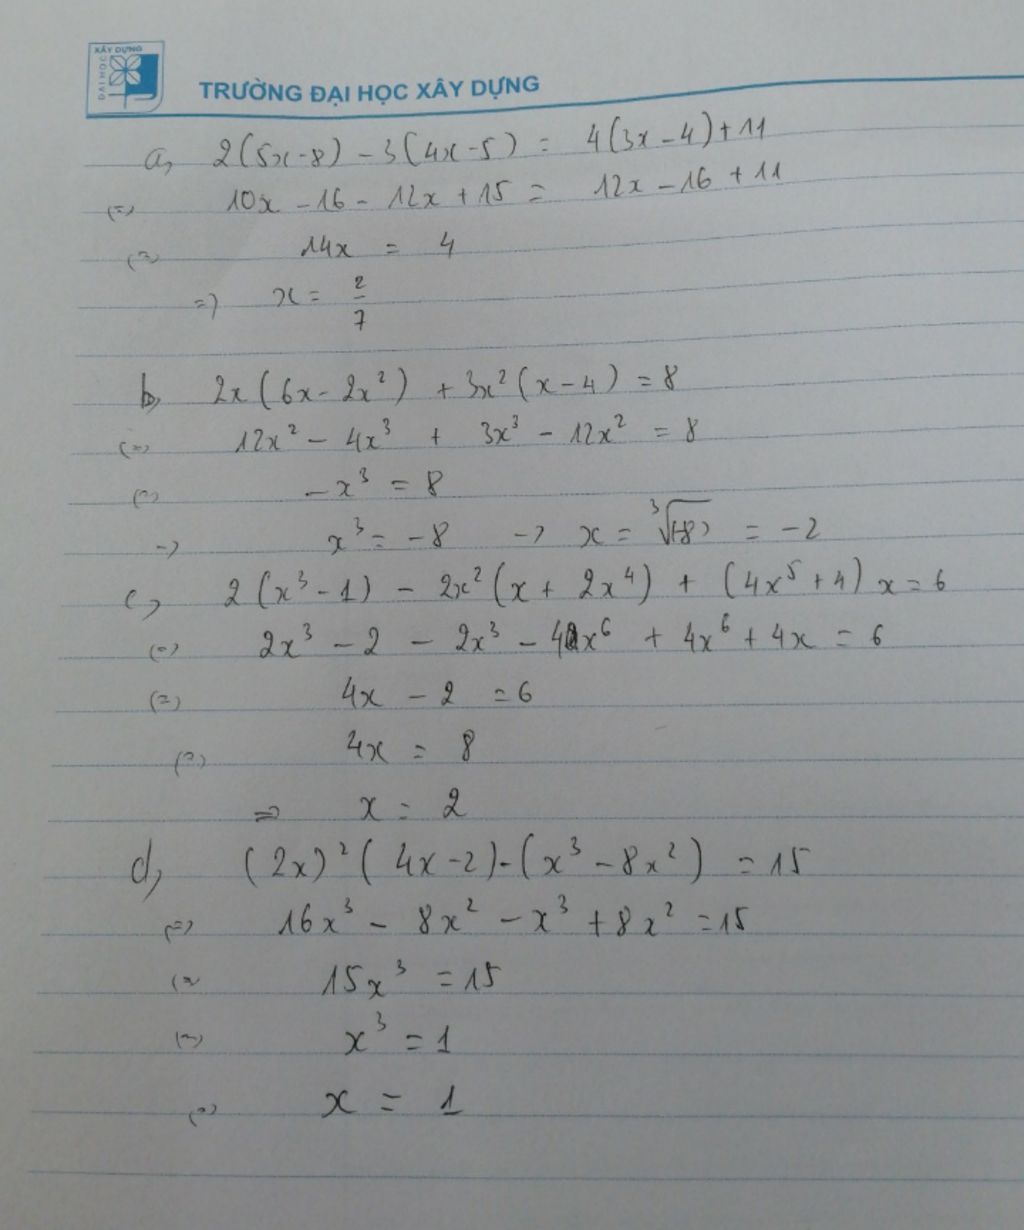 XÂY DỰNG
ĐẠI HỌC
TRƯỜNG ĐẠI HỌC XÂY DỰNG
a, 2(5x-8) - 3(4x-5) = 4(3x-4)+11
(=) 10x - 16 - 12x + 15 = 12x - 16 + 11
(=) 14x = 4
=) x = 2/7
b, 2x(6x-2x²) + 3x²(x-4) = 8
(=) 12x² - 4x³ + 3x³ - 12x² = 8
(=) -x³ = 8
-> x³ = -8 -> x = ³√(-8) = -2
c, 2(x³-1) - 2x²(x+2x⁴) + (4x⁵+4)x = 6
(=) 2x³ - 2 - 2x³ - 4x⁶ + 4x⁶ + 4x = 6
(=) 4x - 2 = 6
(=) 4x = 8
=> x = 2
d, (2x)²(4x-2)-(x³-8x²) = 15
(=) 16x³ - 8x² - x³ + 8x² = 15
(= 15x³ = 15
(=) x³ = 1
(=) x = 1